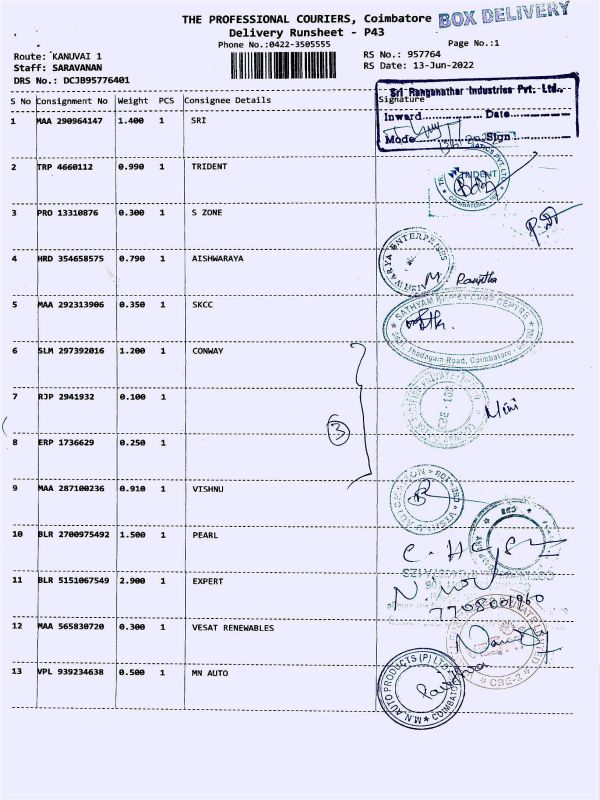 THE PROFESSIONAL COURIERS, Coimbatore BOX DELIVERY
Delivery Runsheet - P43
Phone No.:0422-3505555 Page No.:1
Route: KANUVAI 1 RS No.: 957764
Staff: SARAVANAN RS Date: 13-Jun-2022
DRS No.: DCJB95776401
Sri Ranganathar Industries Pvt. Ltd.
S No Consignment No Weight PCS Consignee Details Signature
Inward Date
1 MAA 290964147 1.400 1 SRI
Mode Sign
2 TRP 4660112 0.990 1 TRIDENT
TRIDENT
COIMBATORE
3 PRO 13310876 0.300 1 S ZONE
4 HRD 354658575 0.790 1 AISHWARAYA
AISHWARYA ENTERPRISES
Ranjitha
5 MAA 292313906 0.350 1 SKCC
SATHYAM KIDNEY CARE CENTRE
Thadagam Road, Coimbatore
6 SLM 297392016 1.200 1 CONWAY
7 RJP 2941932 0.100 1
Mini
8 ERP 1736629 0.250 1
3
9 MAA 287100236 0.910 1 VISHNU
10 BLR 2700975492 1.500 1 PEARL
11 BLR 5151067549 2.900 1 EXPERT
7708001960
12 MAA 565830720 0.300 1 VESAT RENEWABLES
CBE-2
13 VPL 939234638 0.500 1 MN AUTO
M.N. AUTO PRODUCTS (P) LTD
COIMBATORE